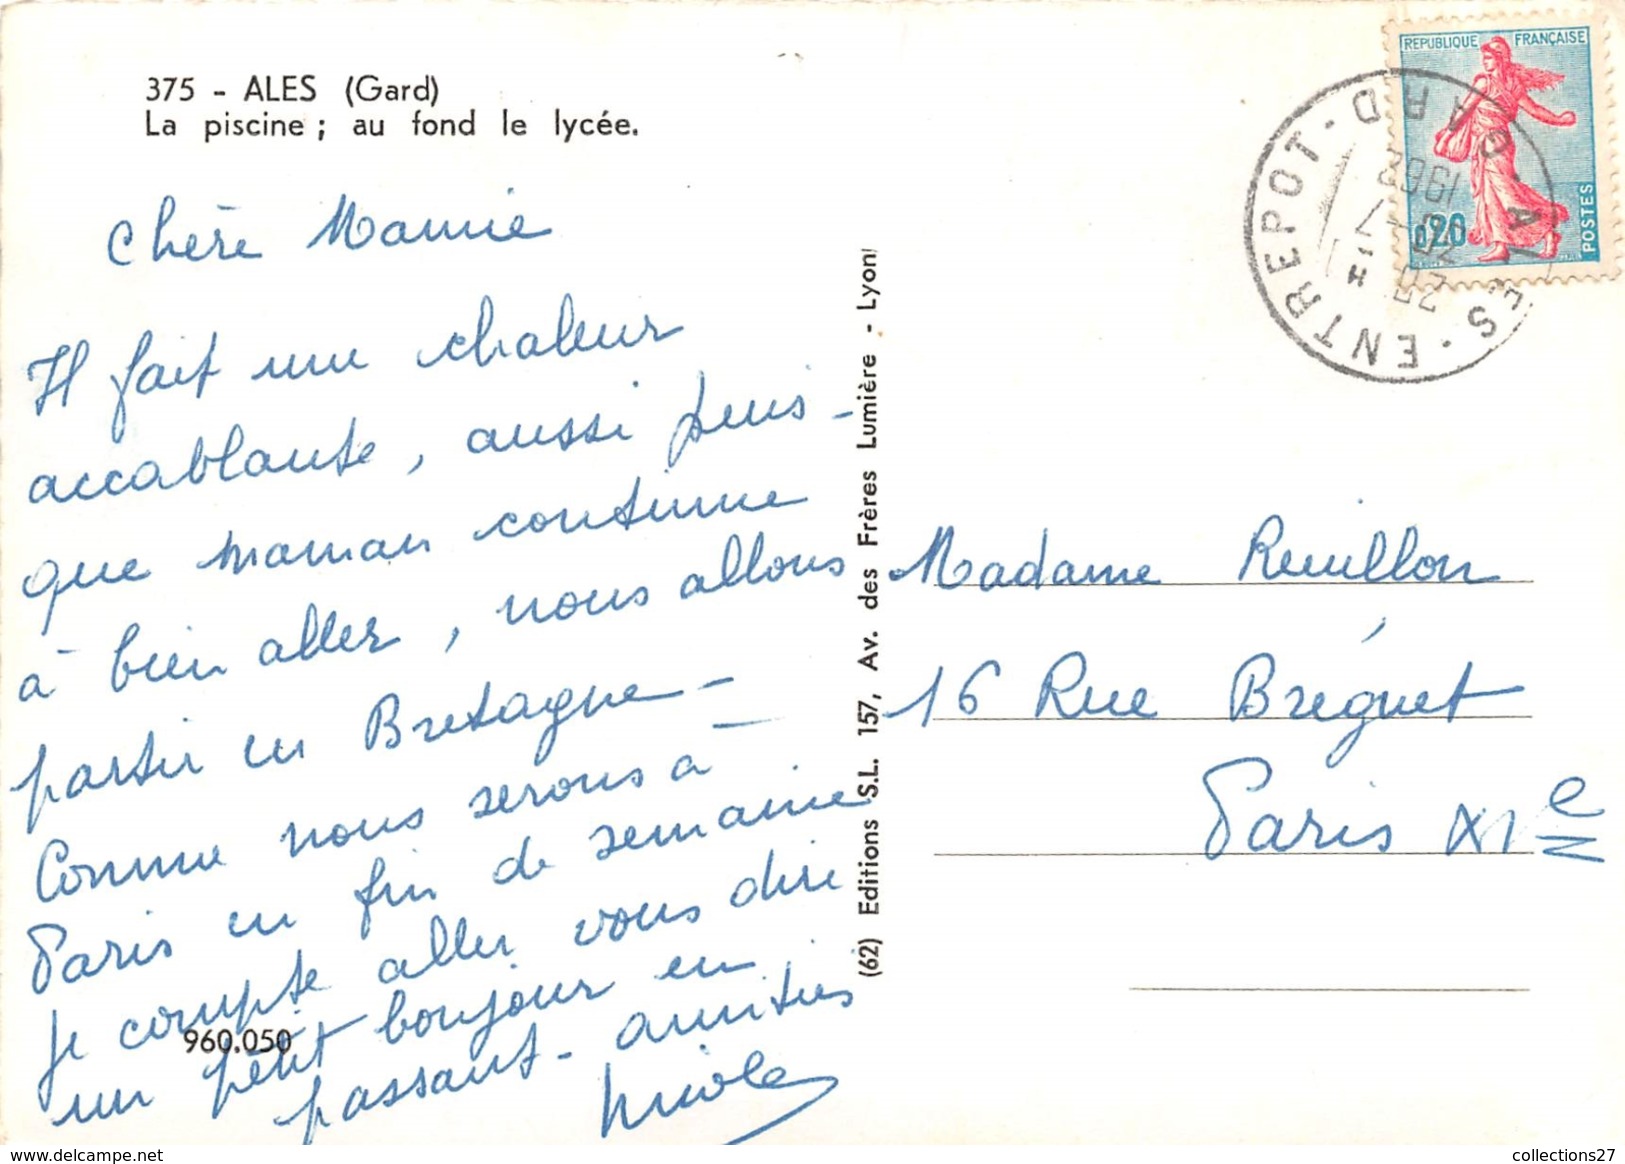 375 - ALES (Gard)
La piscine ; au fond le lycée.
Chère Mamie
Il fait une chaleur
accablante, aussi puis-
que maman continue
à bien aller, nous allons
partir en Bretagne -
Comme nous serons à
Paris en fin de semaine
je compte aller vous dire
un petit bonjour en
passant - amitiés
Nicole
960.050
(62) Editions S.L. 157, Av. des Frères Lumière - Lyon
REPUBLIQUE FRANÇAISE
0,20
POSTES
ALES-ENTREPOT-GARD
Madame Reuillon
16 Rue Bréguet
Paris XIe
delcampe.net
collections27